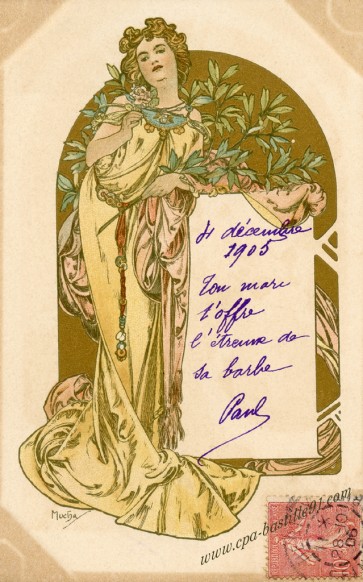 4 décembre
1905
Ton mari
t'offre
l'étrenne de
sa barbe
Paul
Mucha
www.cpa-bastille91.com